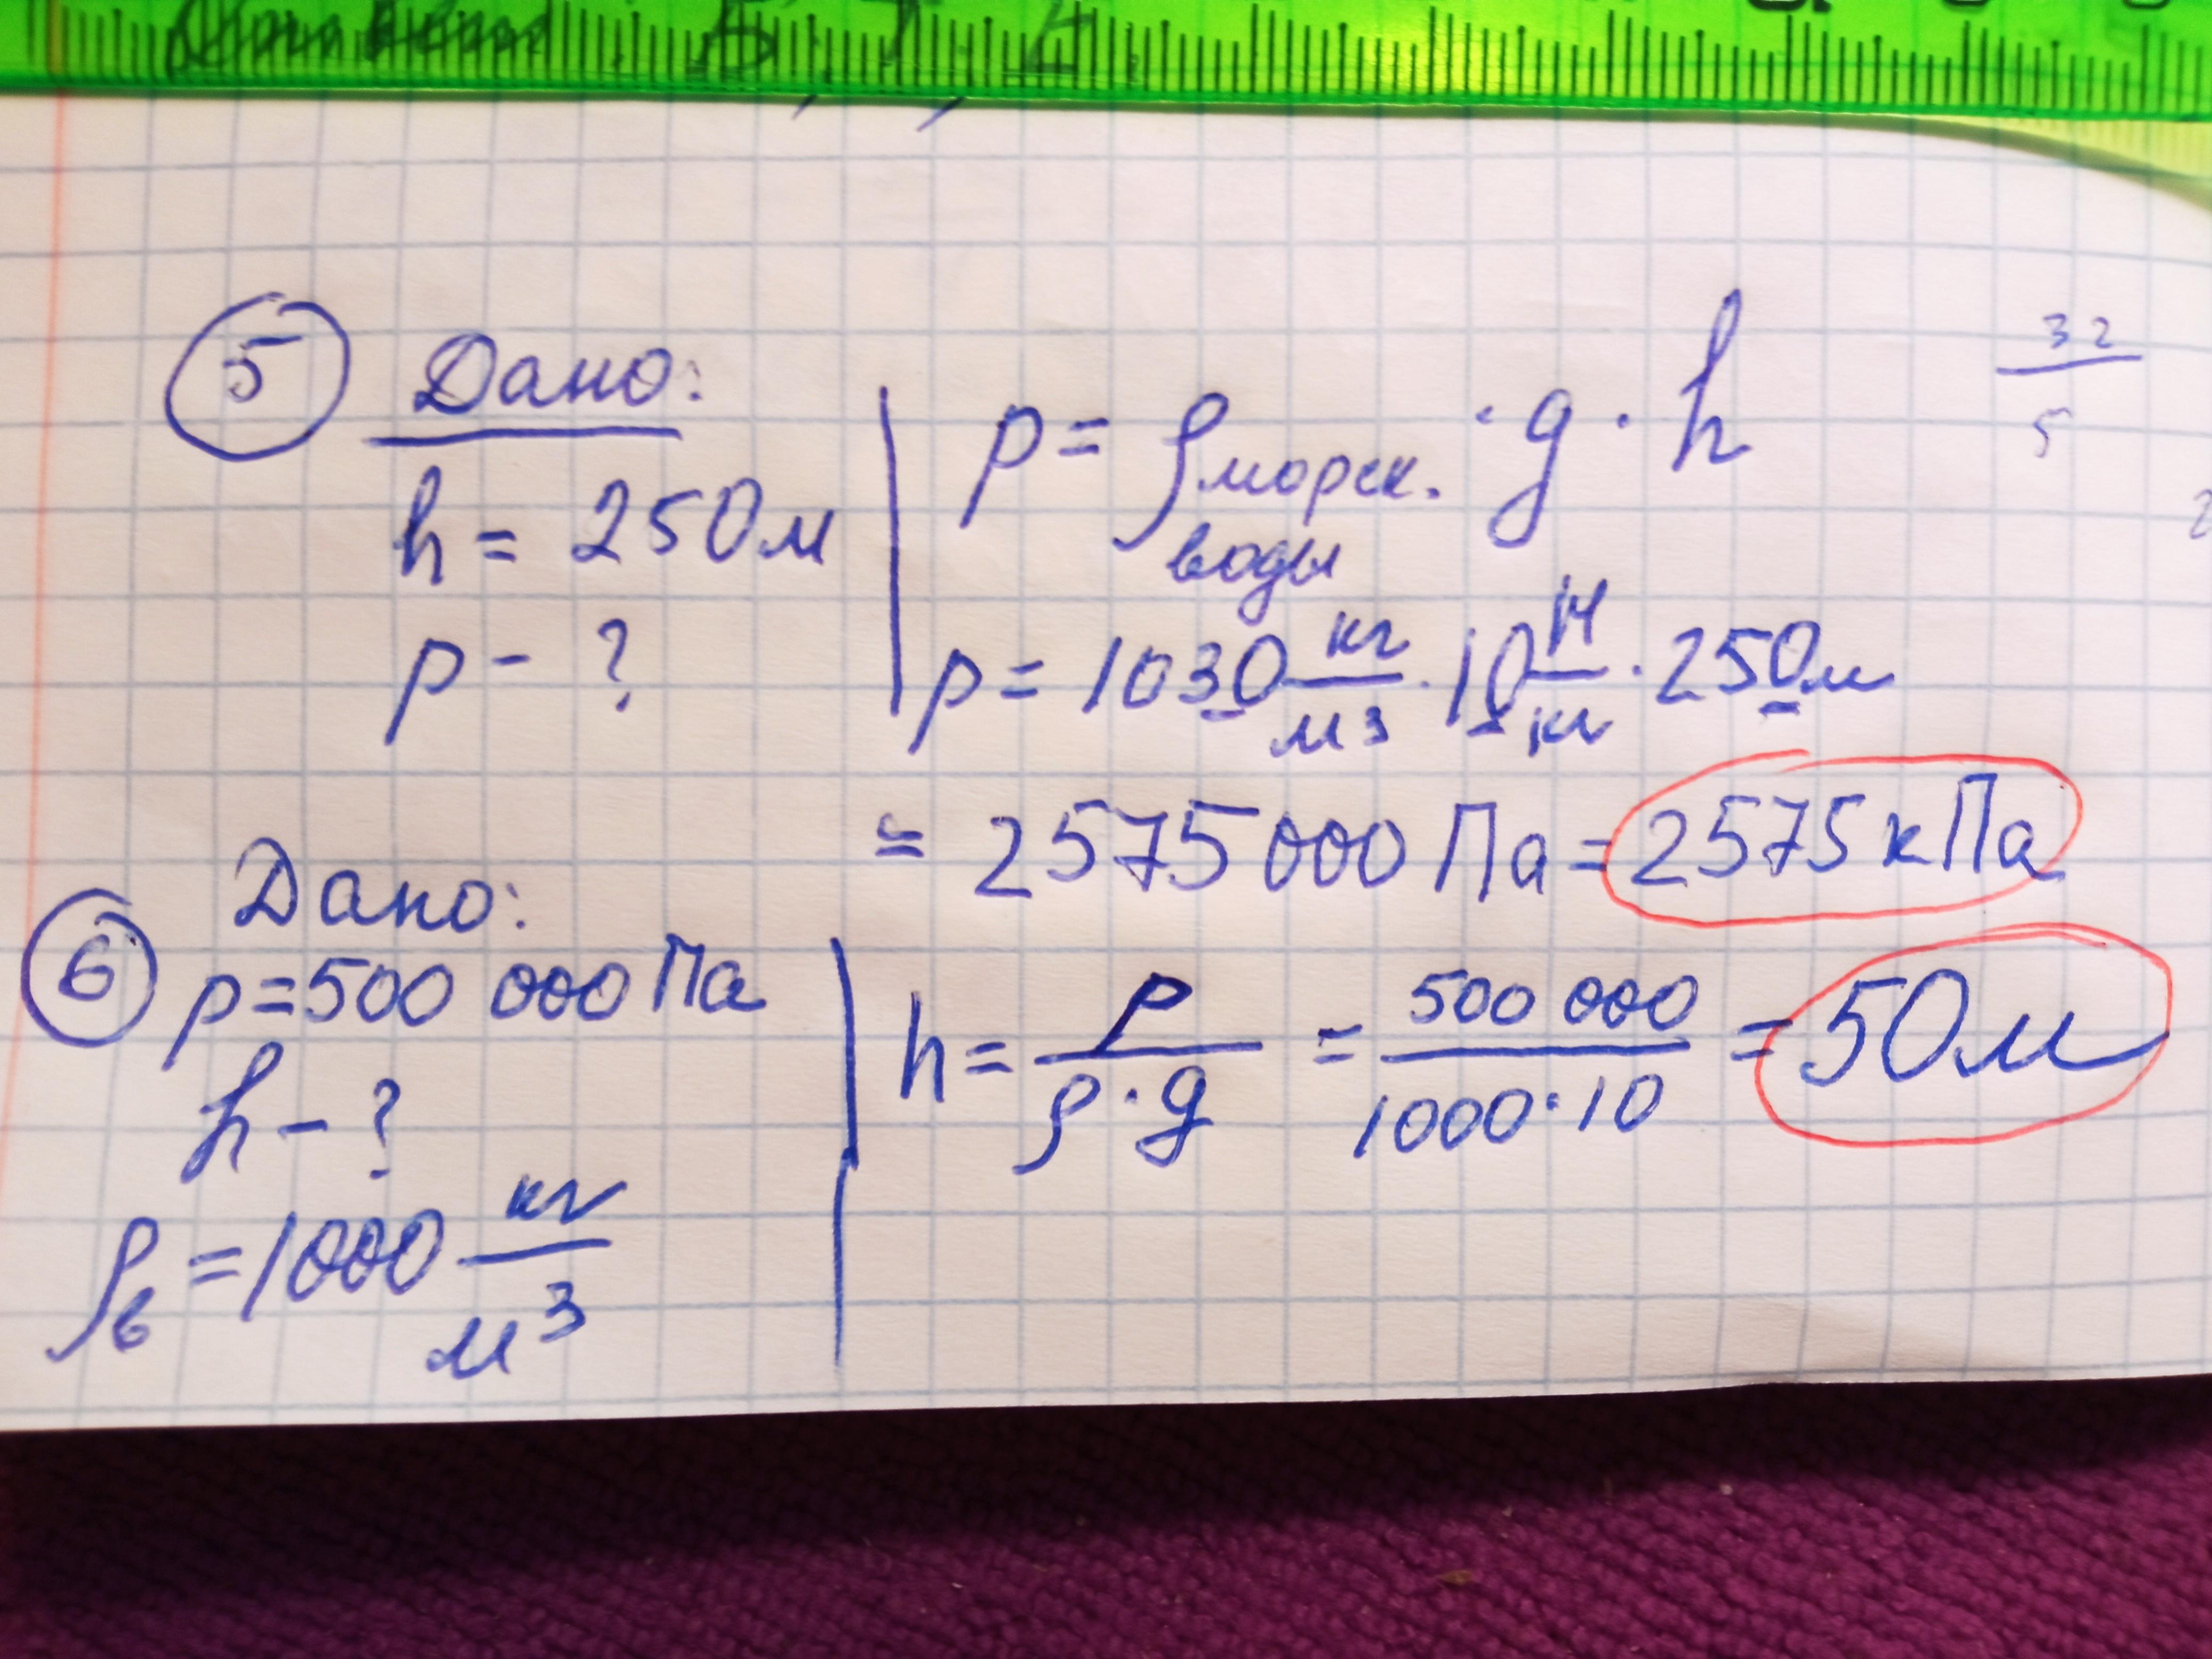 5 Дано:
h = 250м
p - ?
p = ρ морск. воды · g · h
p = 1030 кг/м3 · 10 Н/кг · 250м
= 2575000 Па = 2575 кПа
32
5
6 Дано:
p = 500 000 Па
h - ?
ρв = 1000 кг/м³
h = p/ρ·g = 500 000/1000·10 = 50м